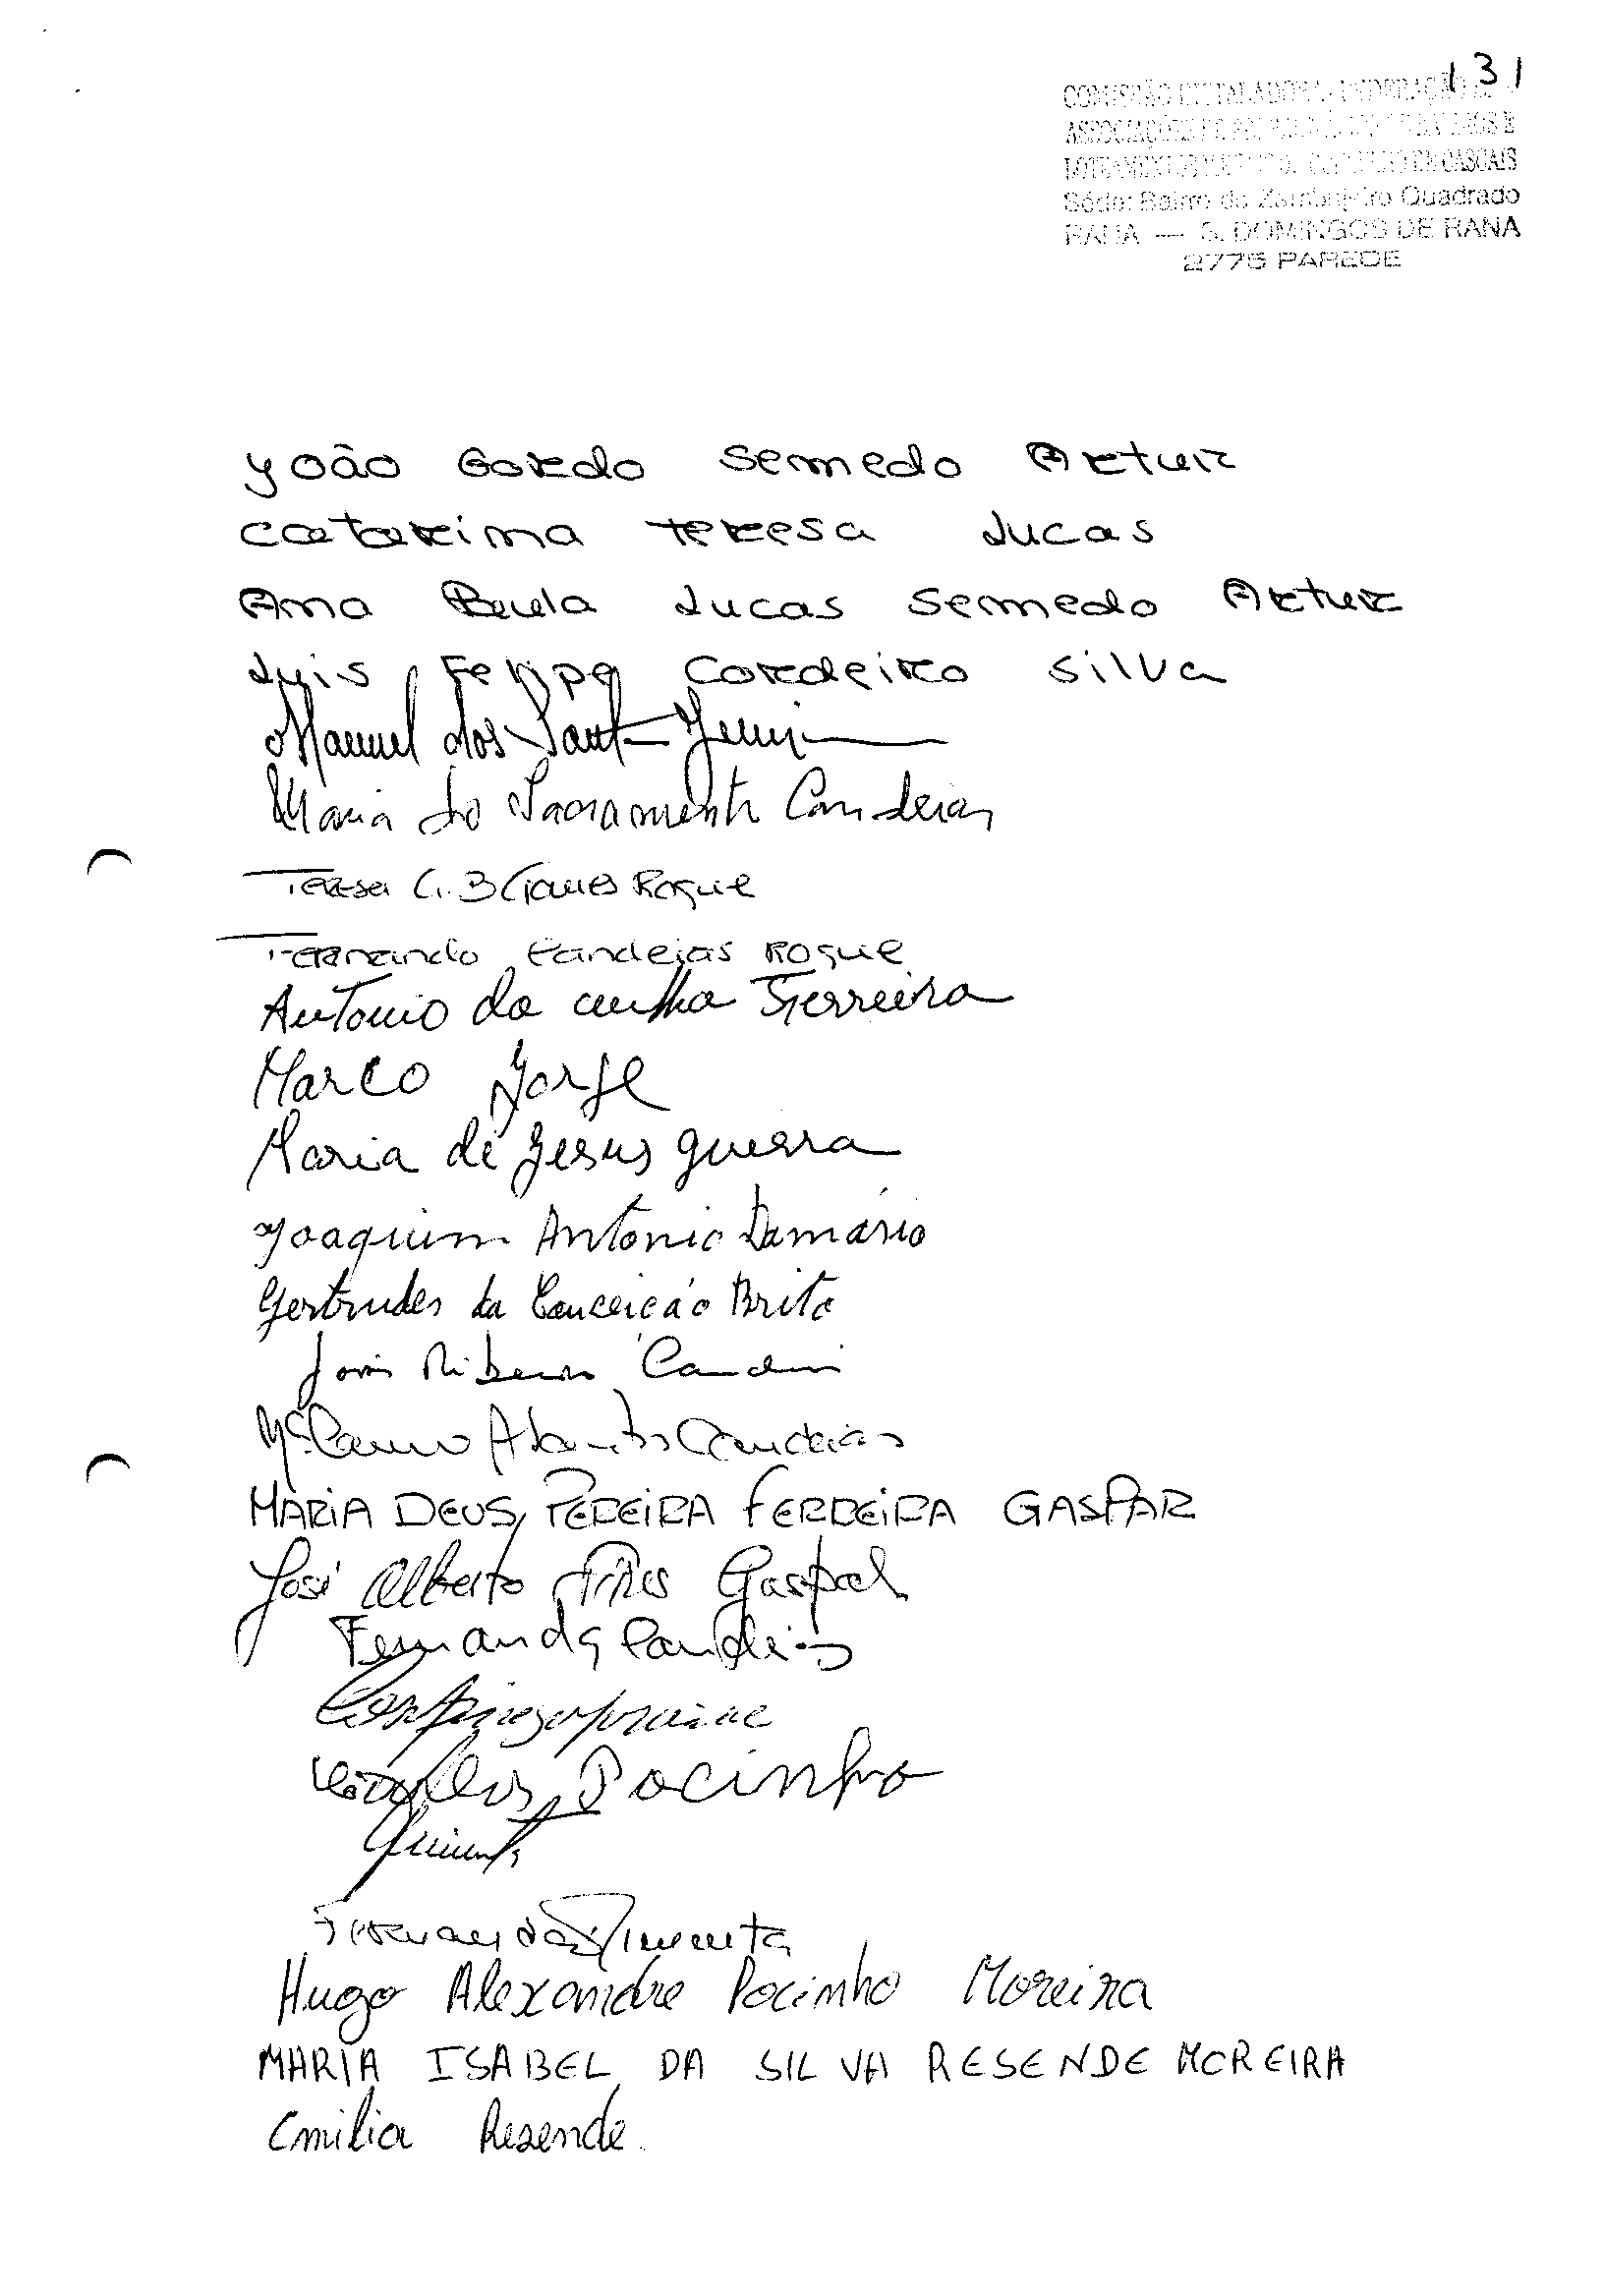 131
COMISSÃO INSTALADORA - FEDERAÇÃO
ASSOCIAÇÕES DE E
DE CASCAIS
Séde: Bairro do Zambujeiro Quadrado
RANA — S. DOMINGOS DE RANA
2775 PAREDE
João Gordo Semedo Artur
Catarina Teresa Lucas
Ana Paula Lucas Semedo Artur
Luis Felipe Cordeiro Silva
Manuel dos Santos
Maria do Sacramento Candeias
Teresa G. B Roque
Fernando Candeias Roque
Antonio da cunha Ferreira
Marco Jorge
Maria de Jesus guerra
Joaquim Antonio Damásio
Gertrudes da Conceição Brito
Ribeiro
Mª Candeias
MARIA DEUS PEREIRA FERREIRA GASPAR
José Alberto Pires Gaspar
Fernanda Candeias
Carlos Pocinho
Fernanda Pimenta
Hugo Alexandre Pocinho Moreira
MARIA ISABEL DA SILVA RESENDE MOREIRA
Emilia Resende.